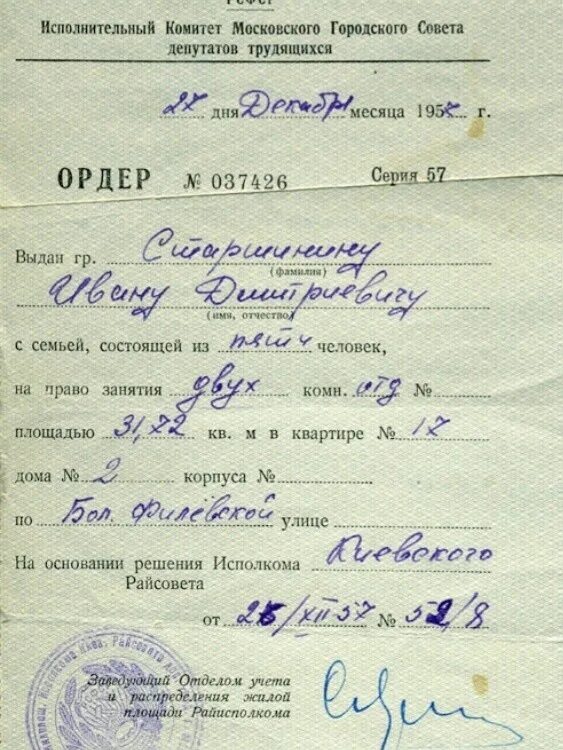 РСФСР
Исполнительный Комитет Московского Городского Совета
депутатов трудящихся
27 дня Декабря месяца 1957 г.
ОРДЕР № 037426 Серия 57
Выдан гр. Старшинину
(фамилия)
Ивану Дмитриевичу
(имя, отчество)
с семьей, состоящей из пяти человек,
на право занятия двух комн. отд №
площадью 31,72 кв. м в квартире № 17
дома № 2 корпуса №
по Бол. Филевской улице
На основании решения Исполкома Киевского
Райсовета
от /XII 57 № 52/8
Заведующий Отделом учета
и распределения жилой
площади Райисполкома